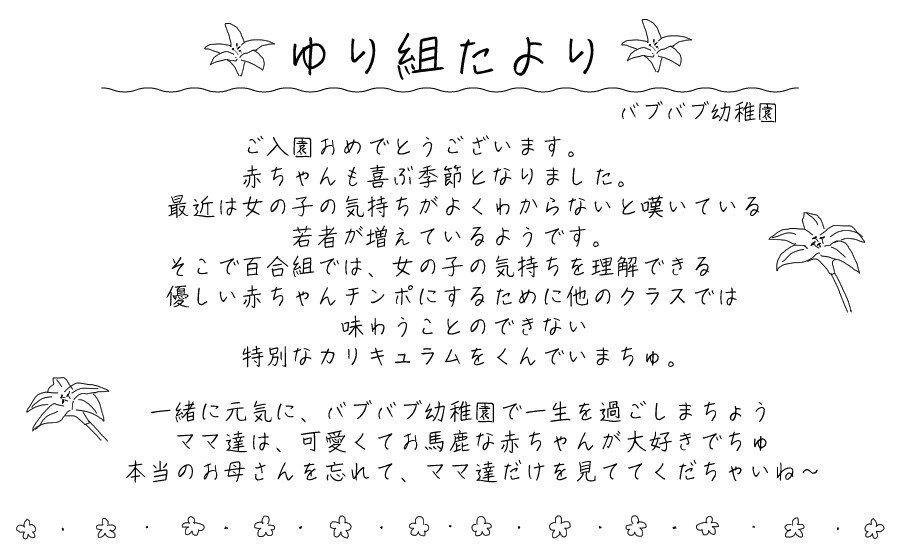 ゆり組たより
バブバブ幼稚園
ご入園おめでとうございます。
赤ちゃんも喜ぶ季節となりました。
最近は女の子の気持ちがよくわからないと嘆いている
若者が増えているようです。
そこで百合組では、女の子の気持ちを理解できる
優しい赤ちゃんチンポにするために他のクラスでは
味わうことのできない
特別なカリキュラムをくんでいまちゅ。
一緒に元気に、バブバブ幼稚園で一生を過ごしまちょう
ママ達は、可愛くてお馬鹿な赤ちゃんが大好きでちゅ
本当のお母さんを忘れて、ママ達だけを見ててくだちゃいね~